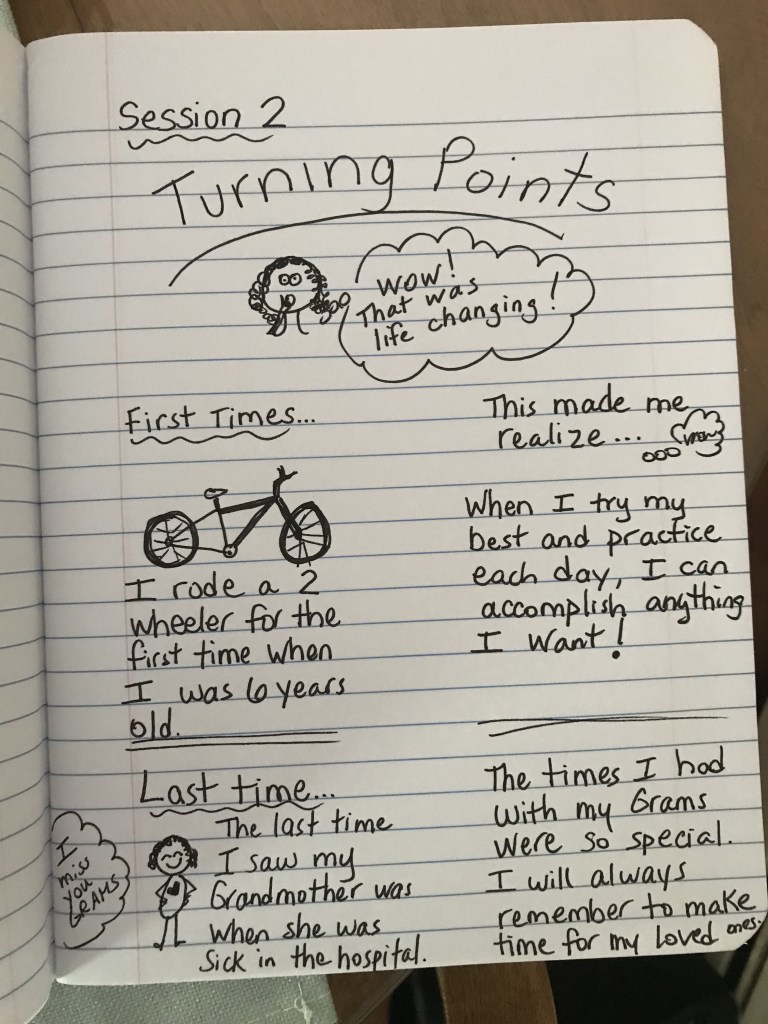 Session 2
Turning Points
WOW!
That was
life changing!
First Times...
I rode a 2
wheeler for the
first time when
I was 6 years
old.
This made me
realize...
wow
When I try my
best and practice
each day, I can
accomplish anything
I want!
Last time...
The last time
I saw my
Grandmother was
when she was
sick in the hospital.
I
miss
you
GRAMS
The times I had
with my Grams
were so special.
I will always
remember to make
time for my loved ones.